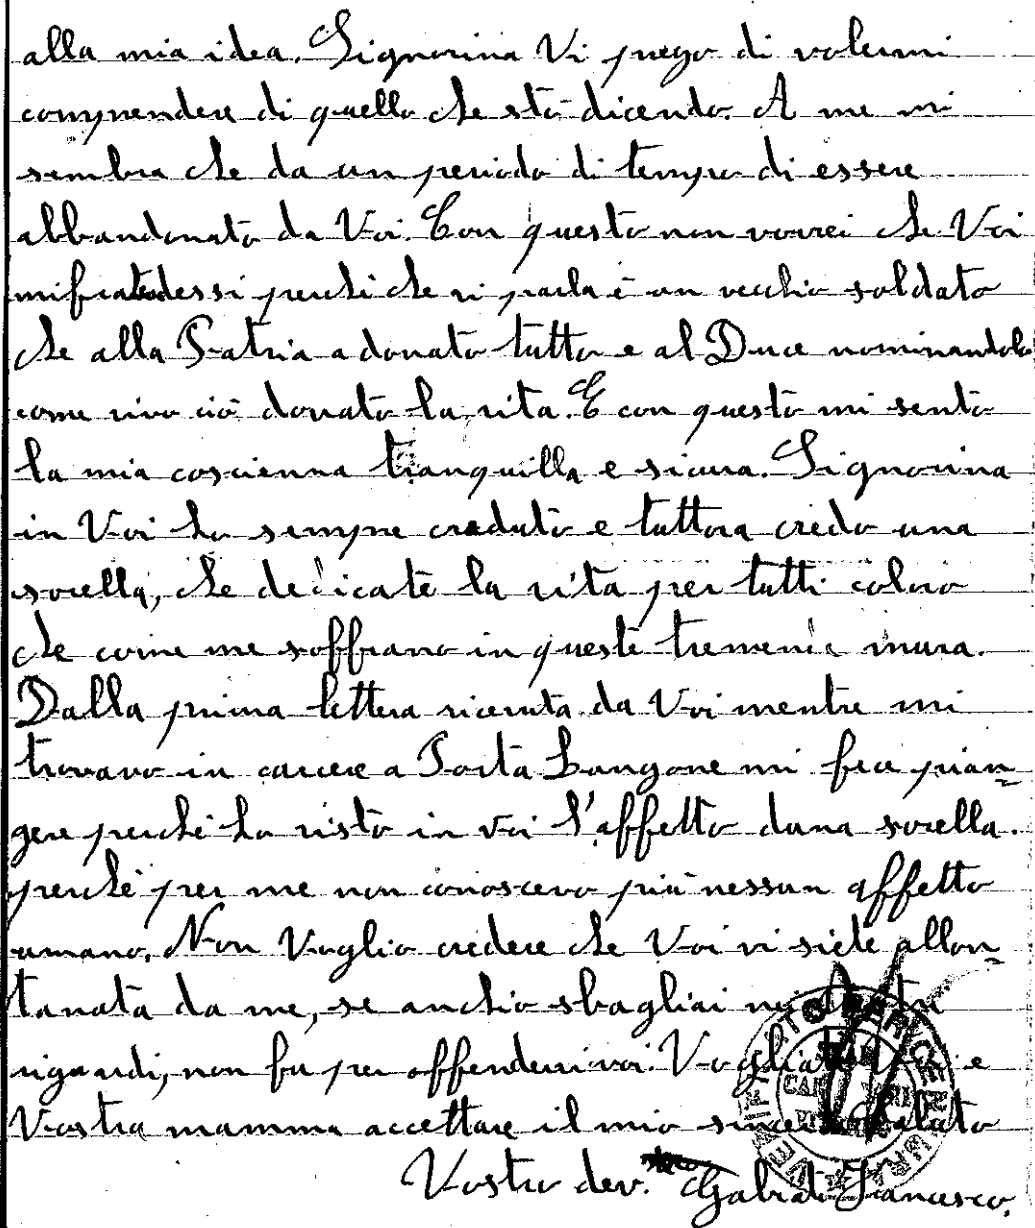 alla mia idea. Signorina Vi prego di volermi
comprendere di quello che sto dicendo. A me mi
sembra che da un periodo di tempo di essere
abbandonato da Voi. Con questo non vorrei che Voi
perché che vi parla è un vecchio soldato
che alla Patria a donato tutto e al Duce nominandolo
come vivo ciò donato la vita. E con questo mi sento
la mia coscienna tranquilla e sicura. Signorina
in Voi ho sempre creduto e tuttora credo una
sorella, che dedicate la vita per tutti coloro
che come me soffrano in queste mura.
Dalla prima lettera ricevuta da Voi mentre mi
trovavo in carcere a Porta Longone mi fece pian=
gere perché ho visto in voi l'affetto duna sorella.
perché per me non conoscevo più nessun affetto
umano. Non Voglio credere che Voi vi siete allon=
tanata da me, se anchio sbagliai
rigandi, non fu per offendervi voi. Vogliate e
Vostra mamma accettare il mio saluto
Vostro dev. Francesco.
VERIFICATO PER CENSURA